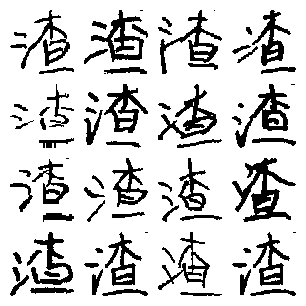 渣渣渣渣
渣渣渣渣
渣渣渣渣
渣渣渣渣